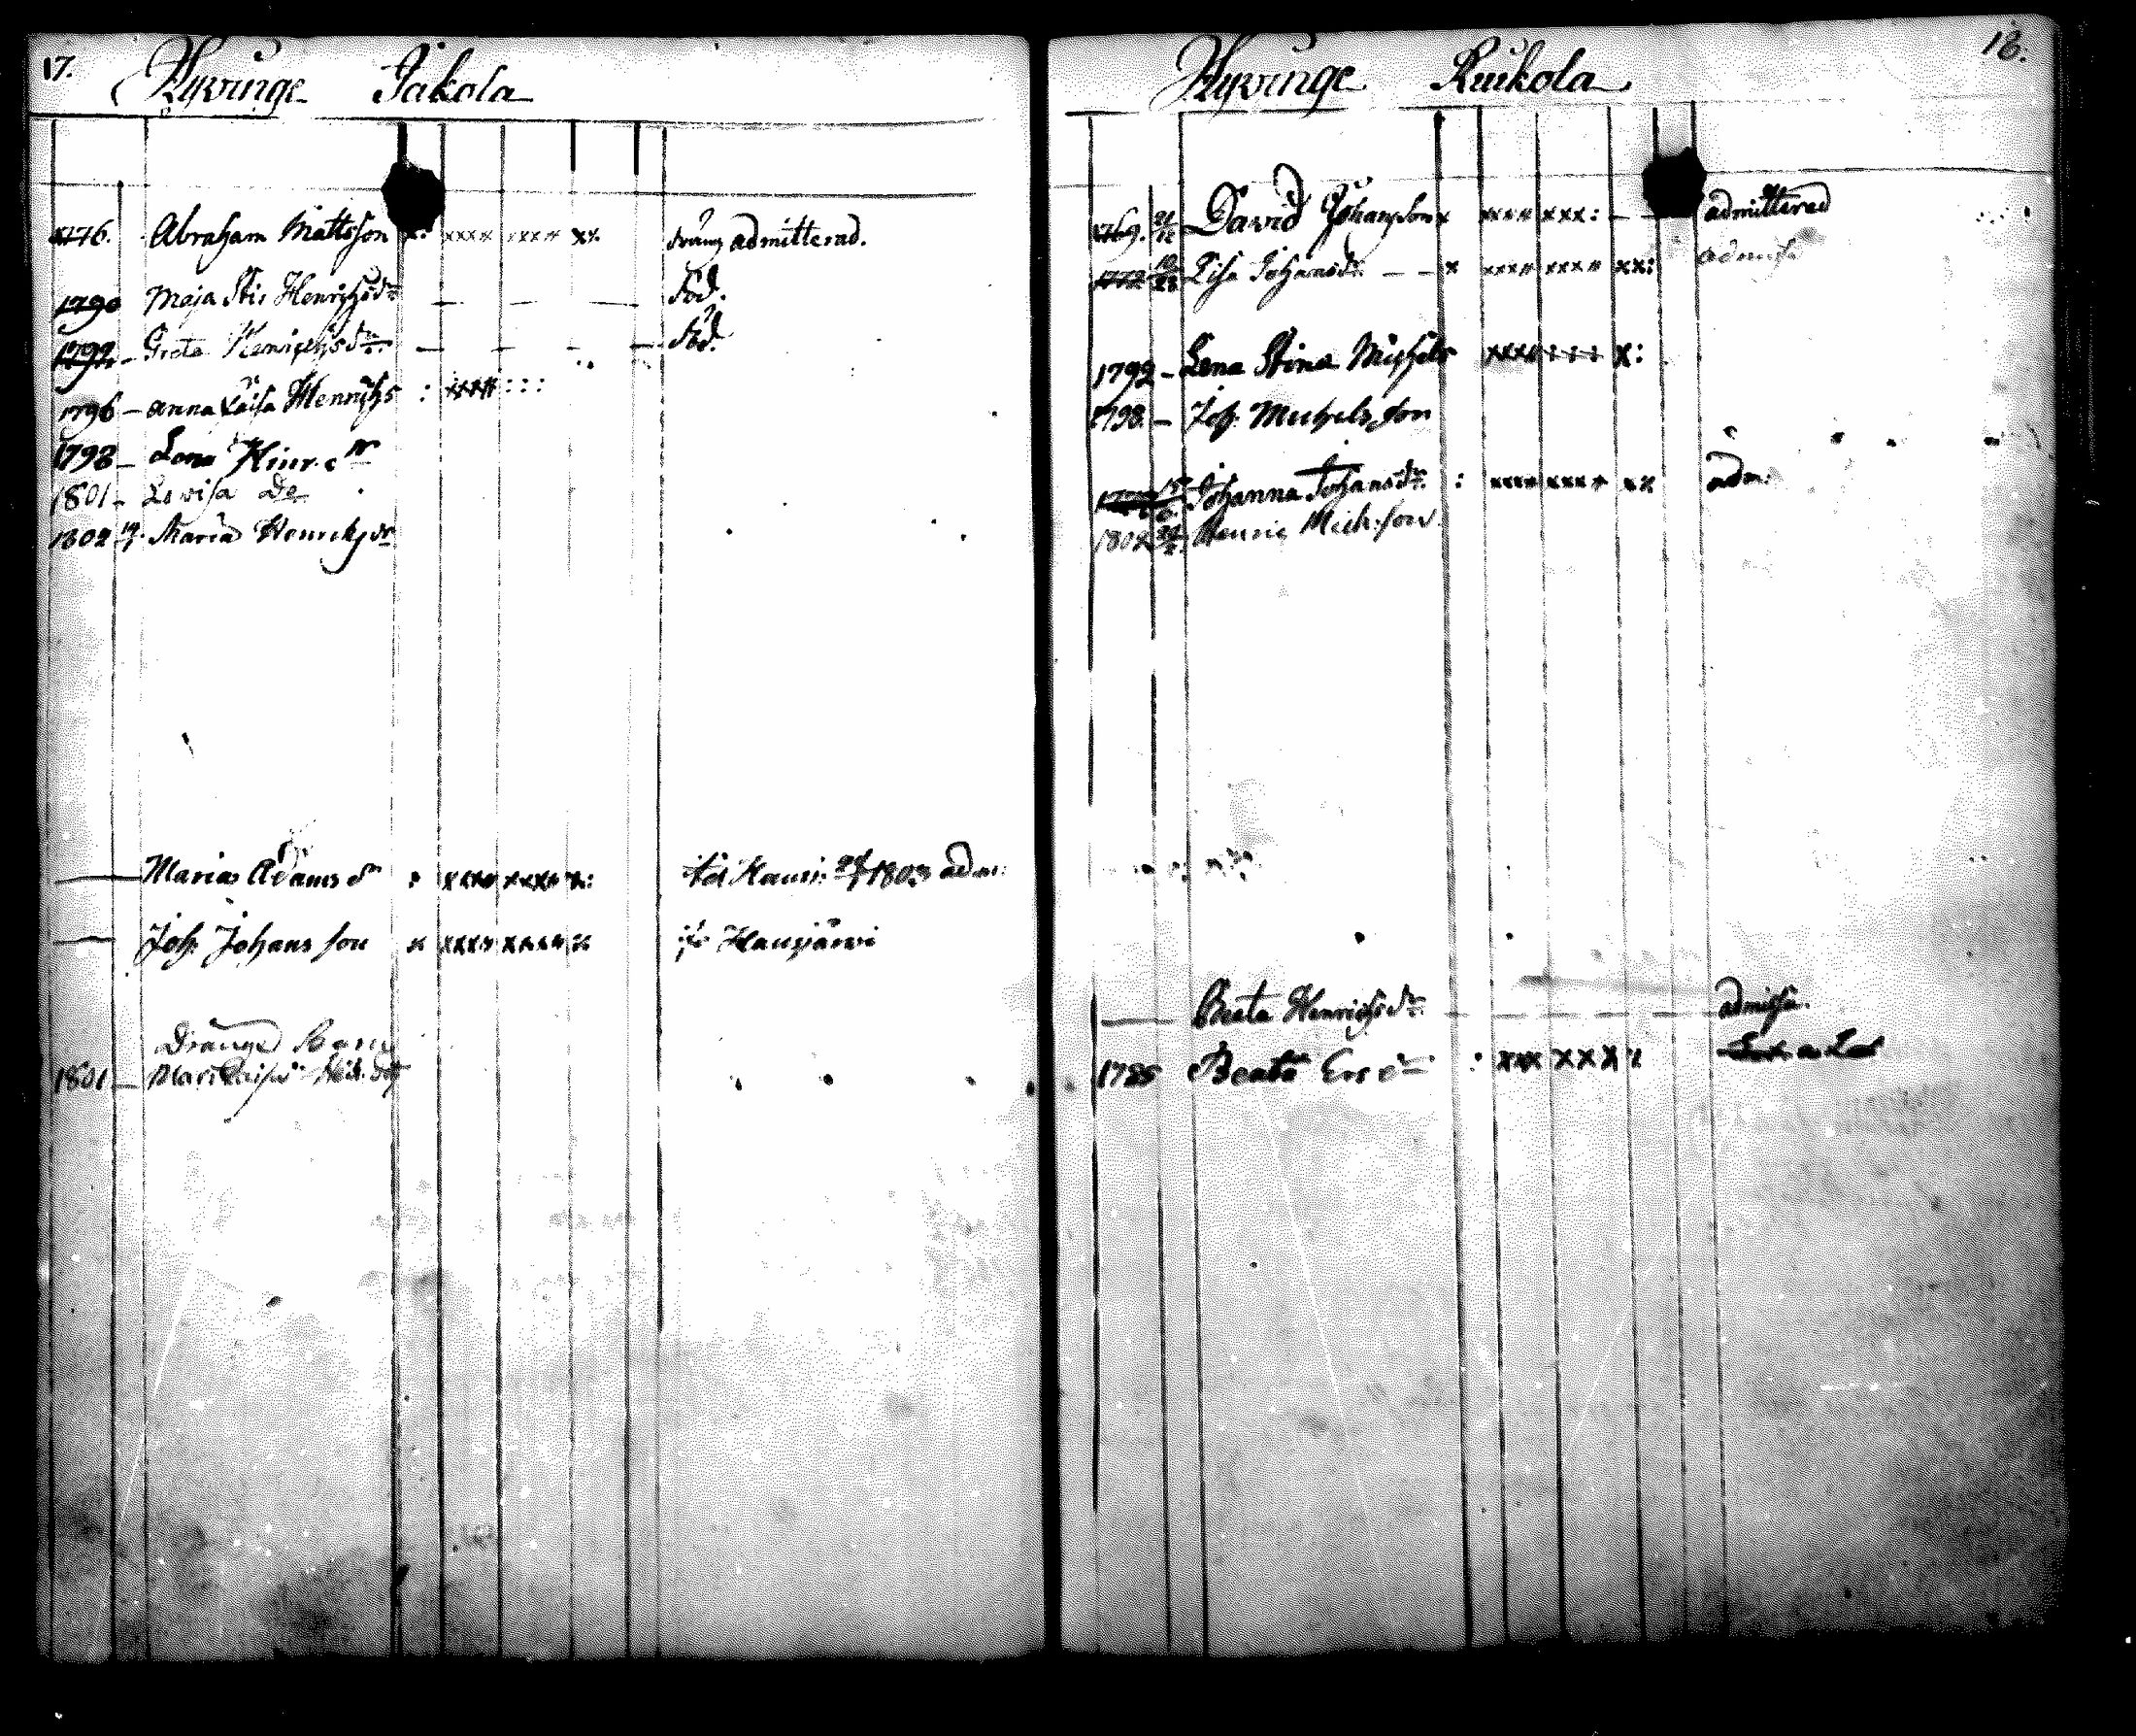 17.
Hyvinge Jakola
1776. Abraham Mattsson x: xxxx xxxx xx admitterad.
1790 Maja Stis Henrichsdr — — — död.
1792 – Greta Henrichsdr — — — — död.
1796 – Anna Caisa Henrichs : xxxx : : :
1798 – Lena Hinr. dr
1801 – Lovisa De
1802 Maria Henricksdr
— Maria Adams dr : xxxx xxxx x: 1803 adm:
— Joh. Johans son x xxxx xxxx x Hausjärvi
1801 –
18.
Hyvinge Kuikola
1769. 21/12 David Johansson x xxxx xxx: — admitterad
1772 Lisa Johansdr. — — x xxxx xxxx xx:
1792 – Lena Stina Michels xxxx : : : x:
1798. – Joh. Michelsson
Johanna Johansdr. : xxxx xxxx xx adm:
1802 Henric Mich:son.
— Beata Henrichsdr. — — — — admissa.
1785 Beata Ers dr : xxx xxxx